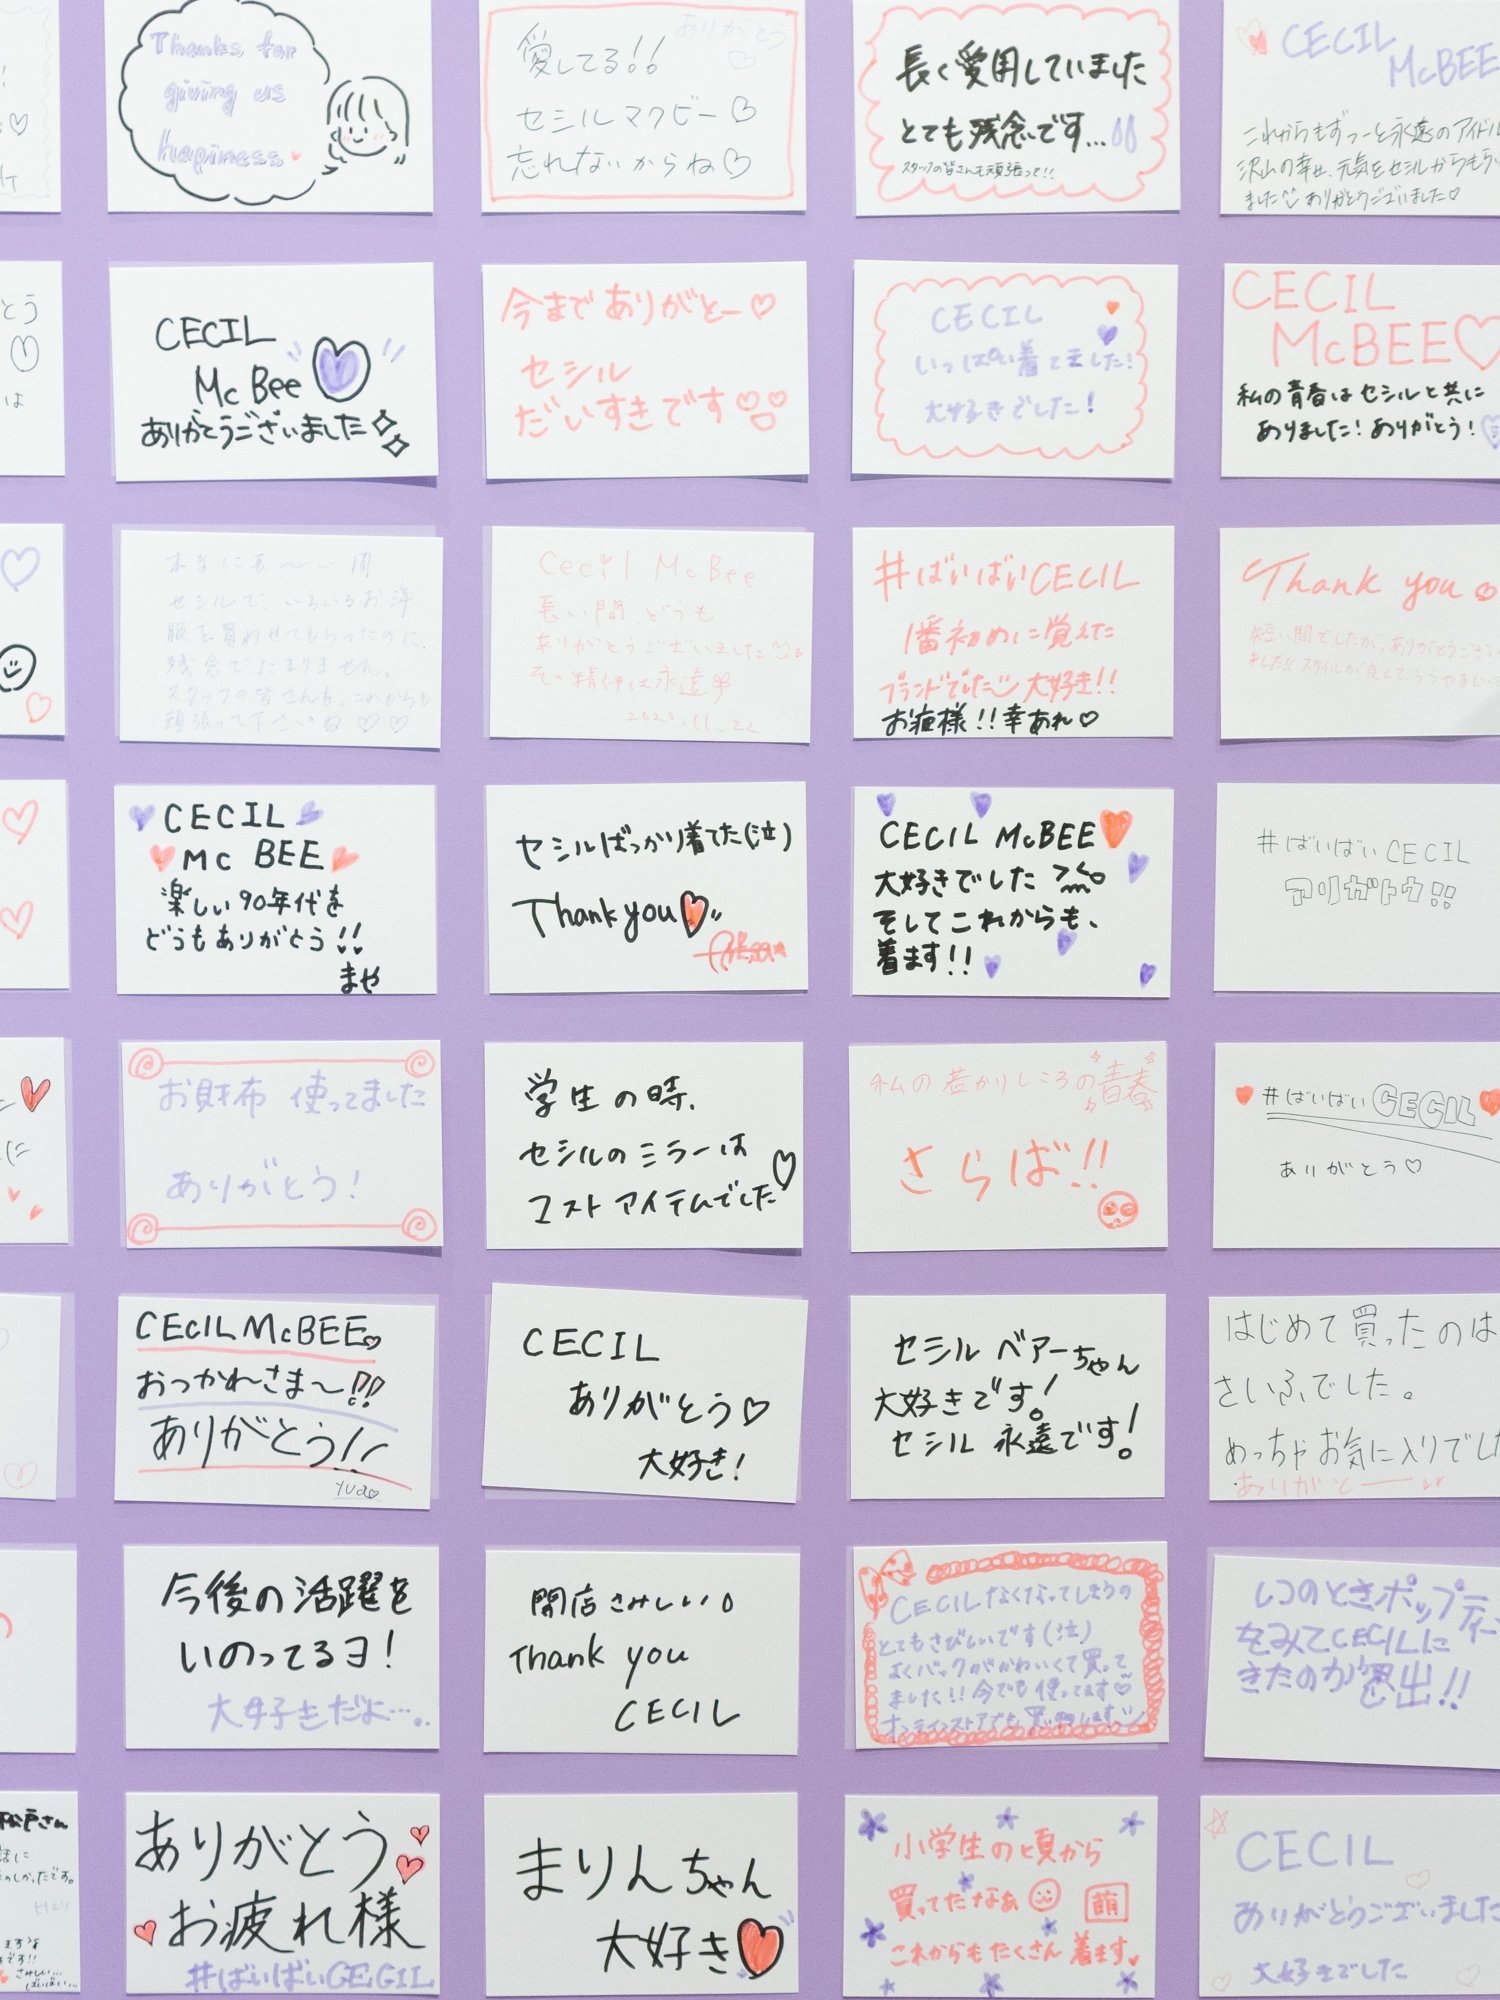 Thanks for
giving us
hapiness
愛してる!!
ありがとう
セシルマクビー♡
忘れないからね♡
長く愛用していました
とても残念です...
スタッフの皆さんも頑張って!!
CECIL
McBEE
これからもずっーと永遠のアイドル
沢山の幸せ、元気をセシルからもらい
ました ありがとうございました♡
とう
は
CECIL
Mc Bee
ありがとうございました
今までありがとー♡
セシル
だいすきです
CECIL
いっぱい着てました!
大好きでした!
CECIL
McBEE♡
私の青春はセシルと共に
ありました!ありがとう!
本当に長〜〜い間
セシルで、いろいろお洋
服を買わせてもらったのに、
残念でたまりません。
スタッフの皆さんも、これからも
頑張って下さいね♡♡
Cecil McBee
長い間、どうも
ありがとうございました
その精神は永遠
2020.11.22
#ばいばいCECIL
1番初めに覚えた
ブランドでした 大好き!!
お疲様!!幸あれ♡
Thank you
短い間でしたが、ありがとうござい
ました!! スタイルが良くて
CECIL
Mc BEE
楽しい90年代を
どうもありがとう!!
まや
セシルばっかり着てた(泣)
Thank you
CECIL McBEE
大好きでした
そしてこれからも、
着ます!!
#ばいばいCECIL
アリガトウ!!
お財布 使ってました
ありがとう!
学生の時、
セシルのミラーは
マストアイテムでした♡
私の若かりしころの青春
さらば!!
#ばいばいCECIL
ありがとう♡
CECIL McBEE
おつかれさま〜!!
ありがとう!!
yua♡
CECIL
ありがとう♡
大好き!
セシルベアーちゃん
大好きです!
セシル 永遠です!
はじめて買ったのは
さいふでした。
めっちゃお気に入りでした
ありがとー
今後の活躍を
いのってるヨ!
大好きだよ....
閉店さみしい
Thank you
CECIL
CECILなくなってしまうの
とてもさびしいです(泣)
よくバックがかわいくて買って
ました!!今でも使ってます♡
オンラインストアでも買い物します
JCのときポップティーン
をみてCECILに
きたのが思出!!
松戸さん
話に
たのしかったです。
さみしい...
ばいばい...
ありがとう
お疲れ様
#ばいばいCECIL
まりんちゃん
大好き
小学生の頃から
買ってたなぁ
萌
これからもたくさん着ます
CECIL
ありがとうございました
大好きでした